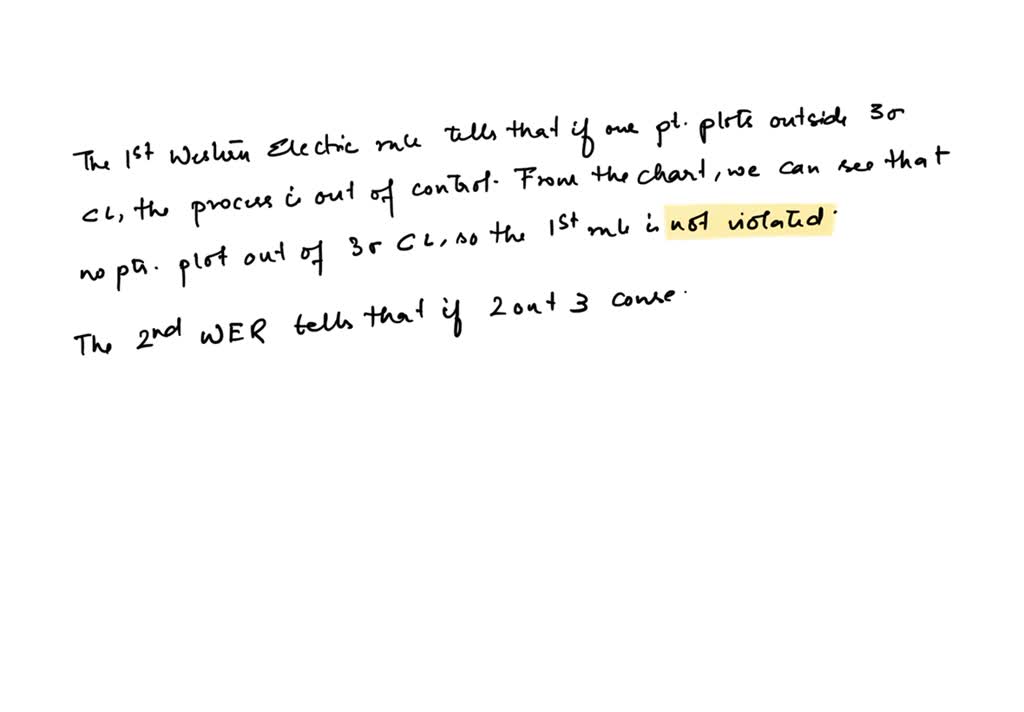 The 1st Western Electric rule tells that if one pt. plots outside 3σ
CL, the process is out of control. From the chart, we can see that
no pts. plot out of 3σ CL, so the 1st rule is not violated.
The 2nd WER tells that if 2 out 3 conse.